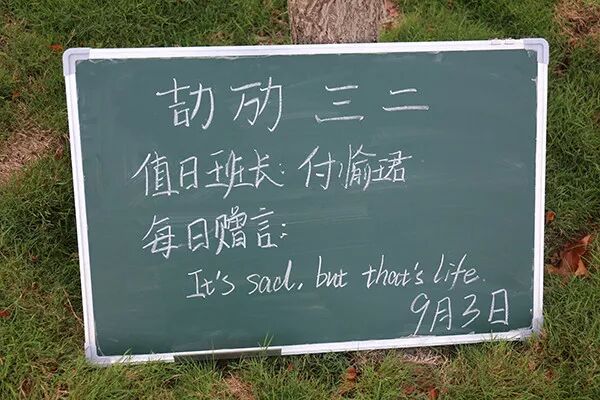 劼劢三二
值日班长:付愉珺
每日赠言:
It's sad, but that's life.
9月3日